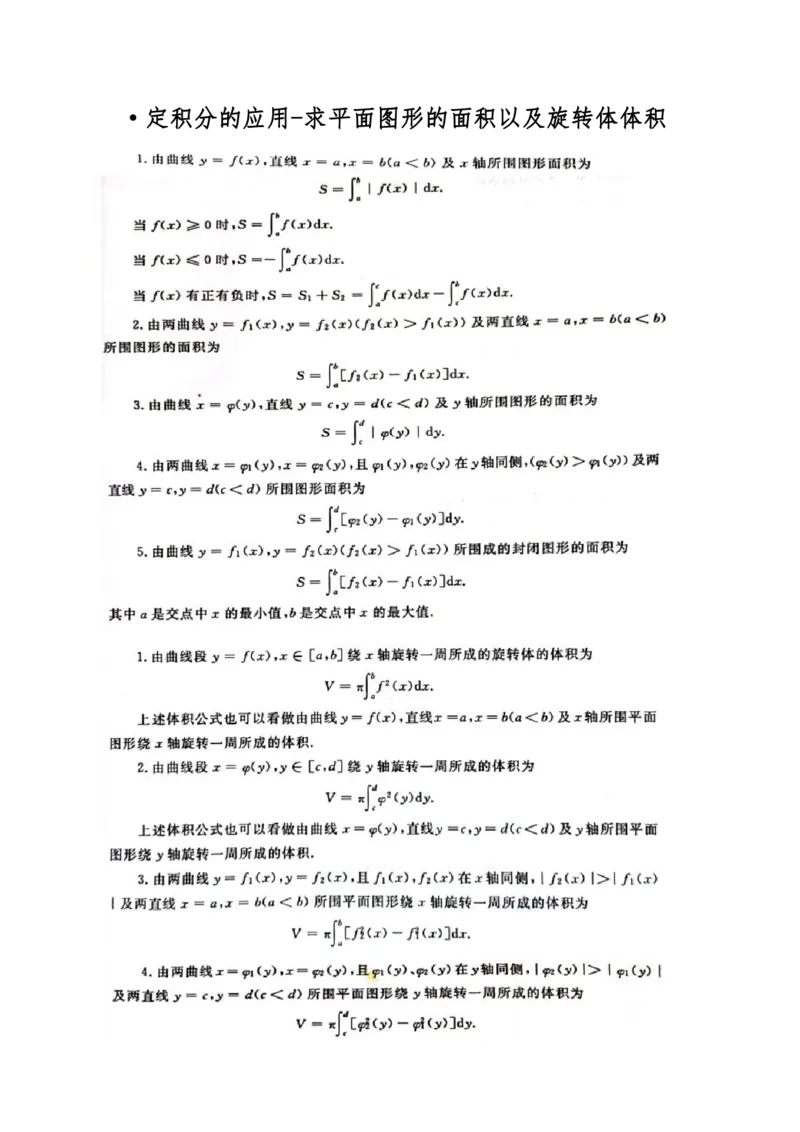 •定积分的应用-求平面图形的面积以及旋转体体积
1. 由曲线 y = f(x),直线 x = a,x = b(a < b) 及 x 轴所围图形面积为
S = ∫_a^b | f(x) | dx.
当 f(x) ≥ 0 时,S = ∫_a^b f(x)dx.
当 f(x) ≤ 0 时,S = -∫_a^b f(x)dx.
当 f(x) 有正有负时,S = S₁ + S₂ = ∫_a^c f(x)dx - ∫_c^b f(x)dx.
2. 由两曲线 y = f₁(x),y = f₂(x)(f₂(x) > f₁(x)) 及两直线 x = a,x = b(a < b)
所围图形的面积为
S = ∫_a^b [f₂(x) - f₁(x)]dx.
3. 由曲线 x = φ(y),直线 y = c,y = d(c < d) 及 y 轴所围图形的面积为
S = ∫_c^d | φ(y) | dy.
4. 由两曲线 x = φ₁(y),x = φ₂(y),且 φ₁(y),φ₂(y) 在 y 轴同侧,(φ₂(y) > φ₁(y)) 及两
直线 y = c,y = d(c < d) 所围图形面积为
S = ∫_c^d [φ₂(y) - φ₁(y)]dy.
5. 由曲线 y = f₁(x),y = f₂(x)(f₂(x) > f₁(x)) 所围成的封闭图形的面积为
S = ∫_a^b [f₂(x) - f₁(x)]dx.
其中 a 是交点中 x 的最小值,b 是交点中 x 的最大值.
1. 由曲线段 y = f(x),x ∈ [a,b] 绕 x 轴旋转一周所成的旋转体的体积为
V = π∫_a^b f²(x)dx.
上述体积公式也可以看做由曲线 y = f(x),直线x = a,x = b(a < b) 及 x 轴所围平面
图形绕 x 轴旋转一周所成的体积.
2. 由曲线段 x = φ(y),y ∈ [c,d] 绕 y 轴旋转一周所成的体积为
V = π∫_c^d φ²(y)dy.
上述体积公式也可以看做由曲线 x = φ(y),直线y = c,y = d(c < d) 及 y 轴所围平面
图形绕 y 轴旋转一周所成的体积.
3. 由两曲线 y = f₁(x),y = f₂(x),且 f₁(x),f₂(x) 在 x 轴同侧,| f₂(x) |>| f₁(x)
| 及两直线 x = a,x = b(a < b) 所围平面图形绕 x 轴旋转一周所成的体积为
V = π∫_a^b [f₂²(x) - f₁²(x)]dx.
4. 由两曲线 x = φ₁(y),x = φ₂(y),且 φ₁(y)、φ₂(y) 在 y 轴同侧,| φ₂(y) |> | φ₁(y) |
及两直线 y = c,y = d(c < d) 所围平面图形绕 y 轴旋转一周所成的体积为
V = π∫_c^d [φ₂²(y) - φ₁²(y)]dy.